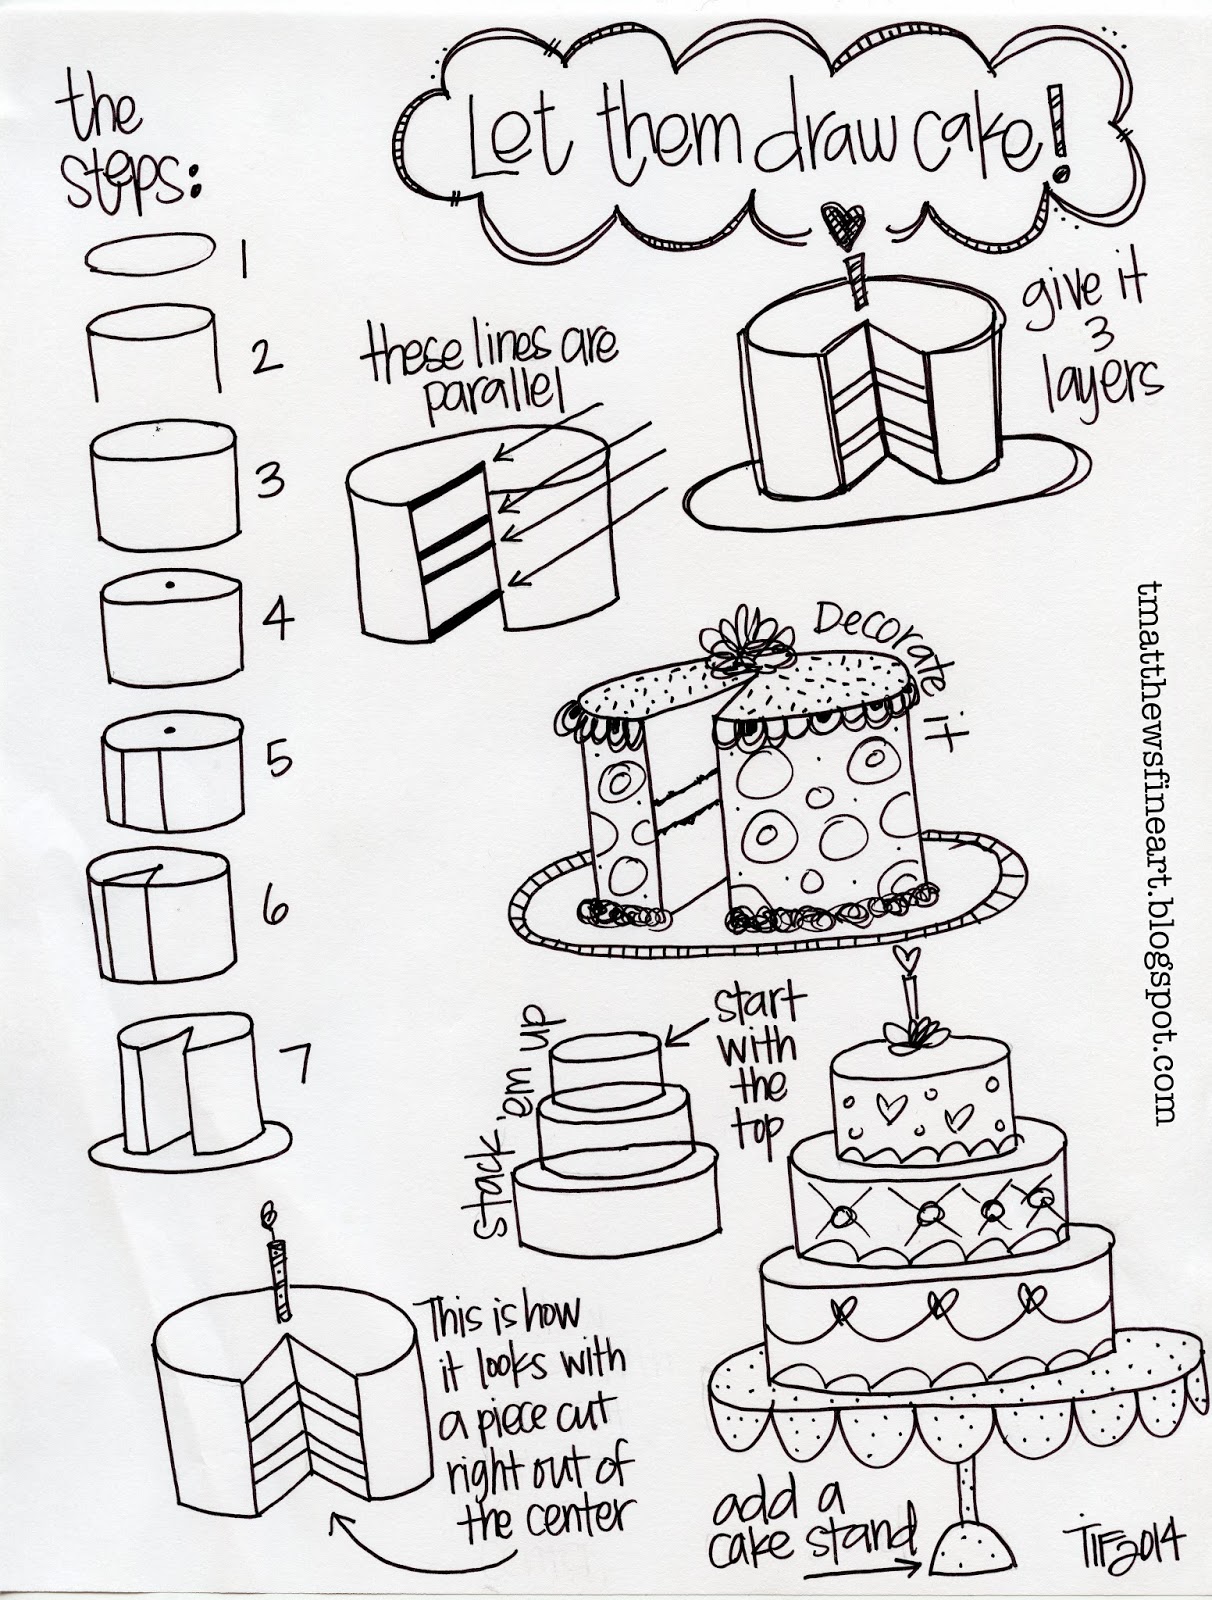 Let them draw cake!
the
steps:
1
2
3
4
5
6
7
these lines are
parallel
give it
3
layers
Decorate it
tmatthewsfineart.blogspot.com
stack 'em up
start
with
the
top
This is how
it looks with
a piece cut
right out of
the center
add a
cake stand
TIF2014